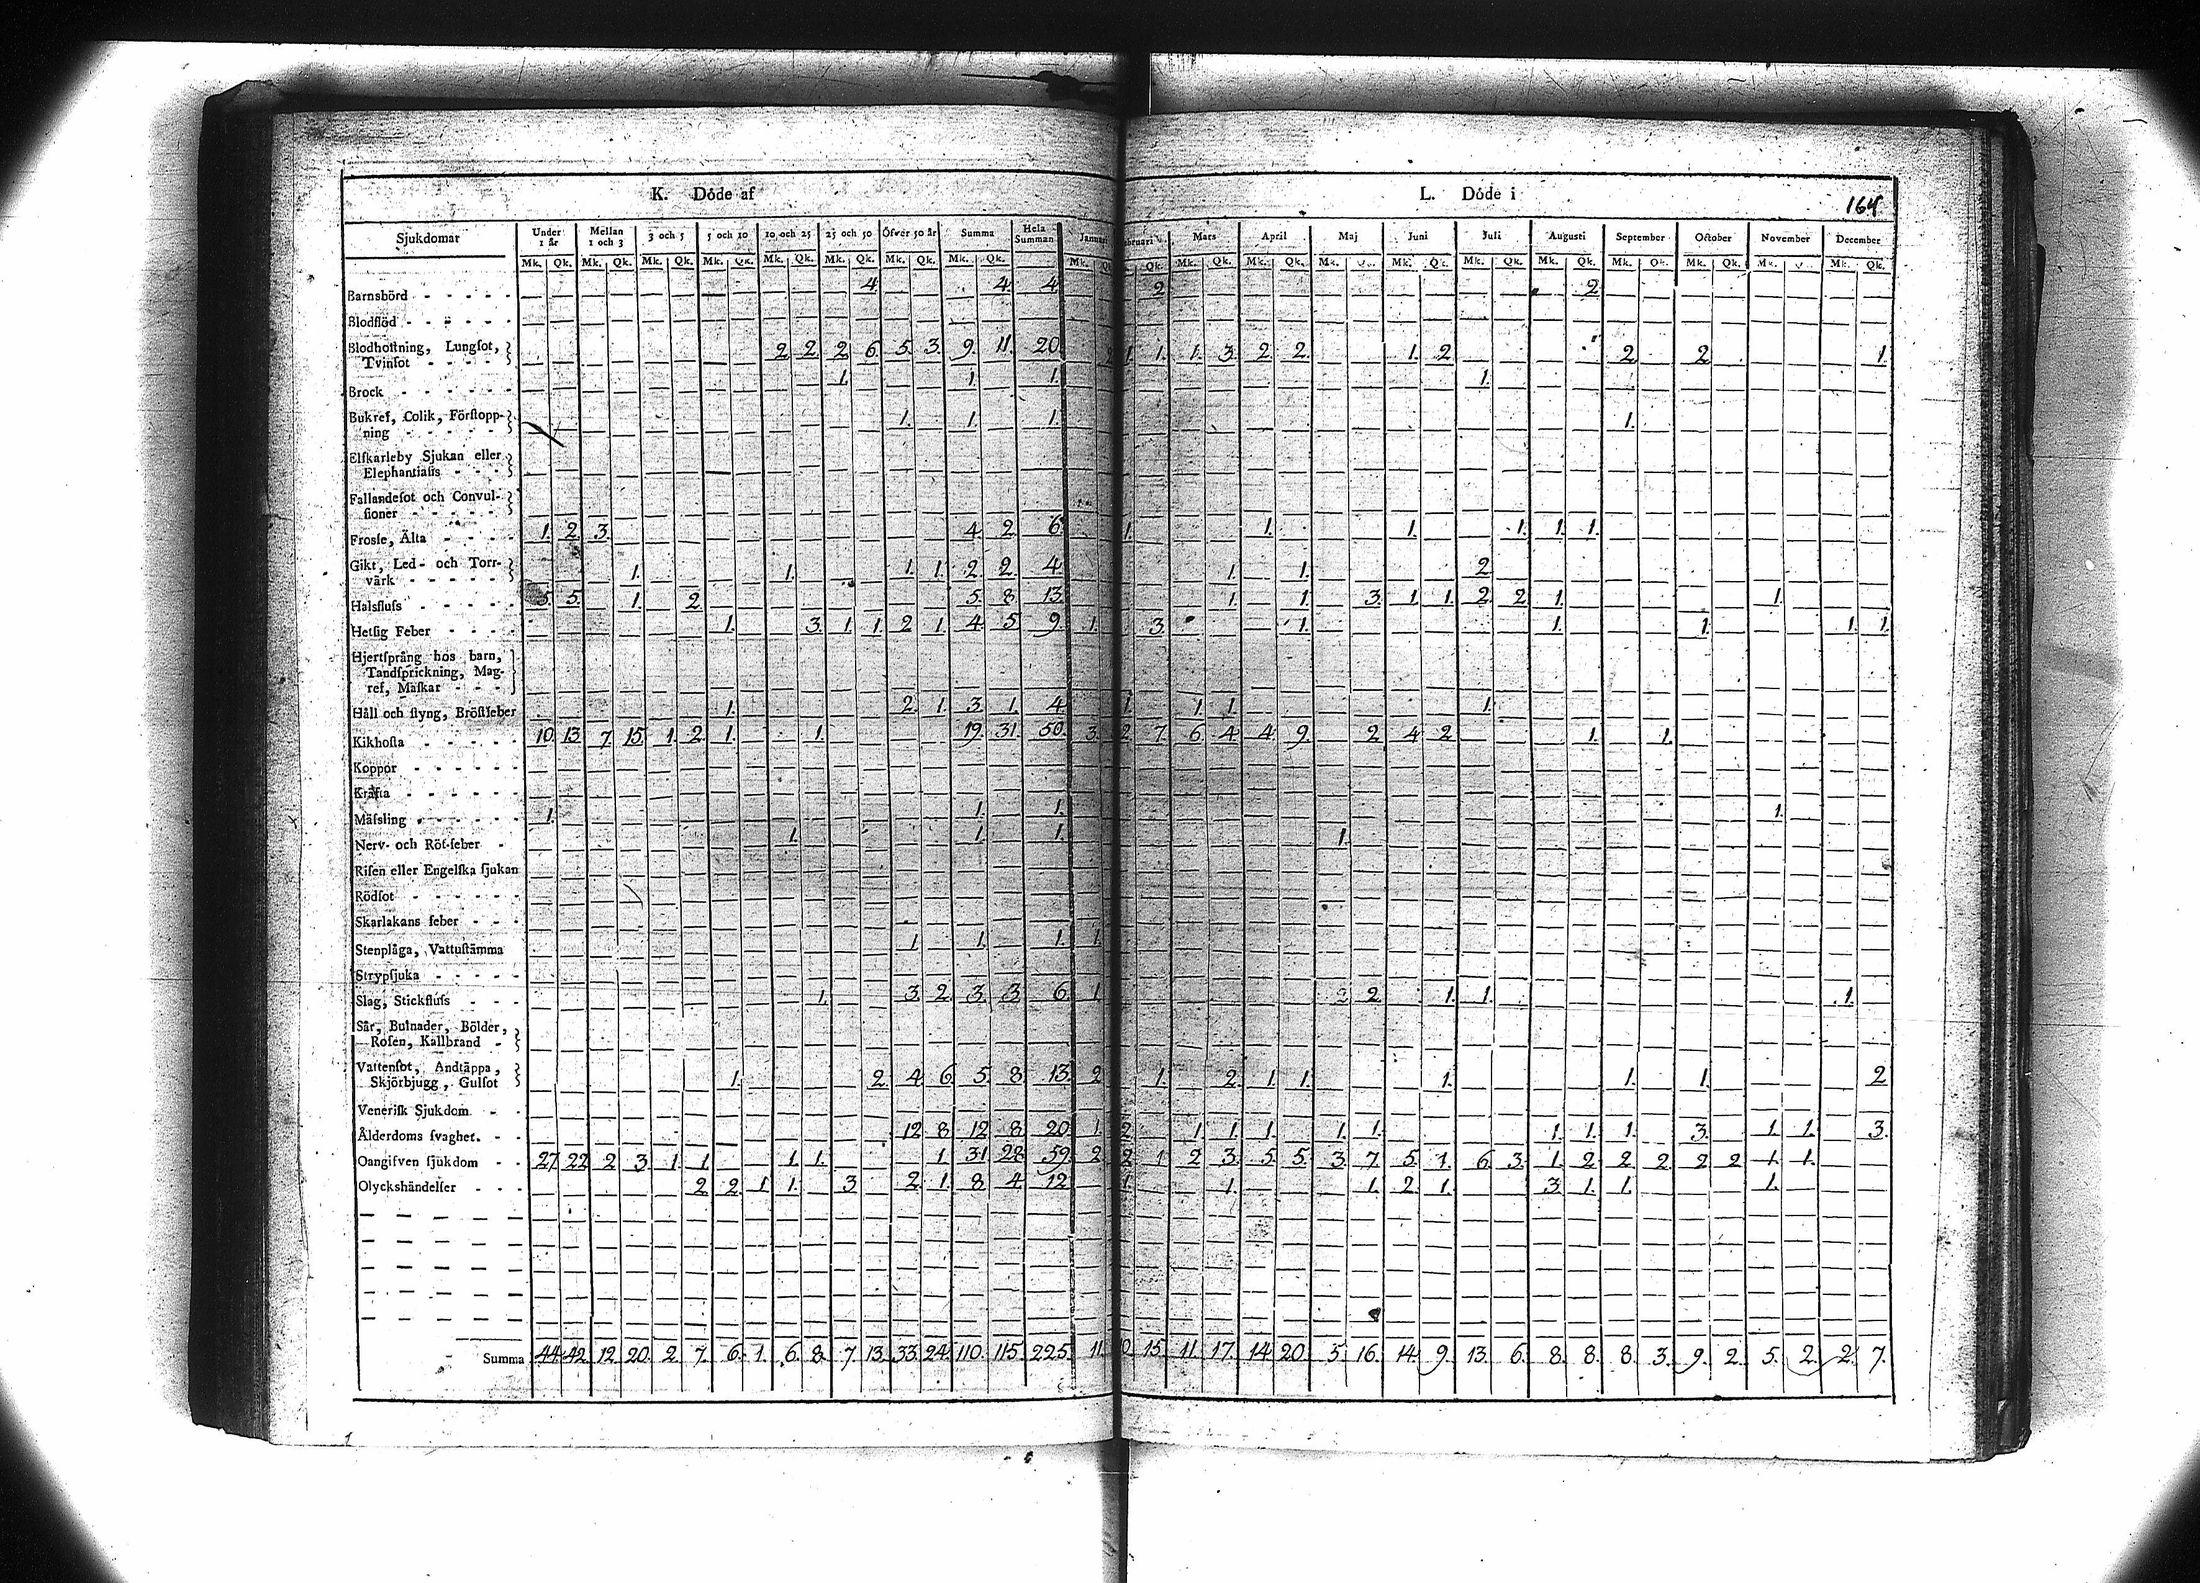 K. Döde af
L. Döde i
164
Sjukdomar Under 1 år Mellan 1 och 3 3 och 5 5 och 10 10 och 25 25 och 50 Öfver 50 år Summa Hela Summan Januari Mars April Maj Juni Juli Augusti September October November December
Mk. Qk. Mk. Qk. Mk. Qk. Mk. Qk. Mk. Qk. Mk. Qk. Mk. Qk. Mk. Qk. Mk. Qk. Mk. Qk. Mk. Qk. Mk. Qk. Mk. Qk. Mk. Qk. Mk. Qk. Mk. Qk. Mk. Qk. Mk. Qk.
Barnsbörd - - - - - 4 4 4 2 2
Blodflöd - - - - - -
Blodhostning, Lungsot,
Tvinsot - - - - 2 2 2 6 5 3 9 11 20 2 1 1 1 3 2 2 1 2 2 2 1
Brock - - - - - - 1 1 1 1
Bukref, Colik, Förstopp-
ning - - - - - 1 1 1 1
Elfkarleby Sjukan eller
Elephantiasis - - -
Fallandesot och Convul-
sioner - - - - -
Frosse, Älta - - - - 1 2 3 4 2 6 1 1 1 1 1 1
Gikt, Led- och Torr-
värk - - - - - 1 1 1 1 2 2 4 1 1 2
Halsfluss - - - - - 5 5 1 2 5 8 13 1 1 3 1 1 2 2 1 1
Hetsig Feber - - - - 1 3 1 1 2 1 4 5 9 1 3 1 1 1 1 1
Hjertsprång hos barn,
Tandsprickning, Mag-
ref, Maskar - - -
Håll och styng, Bröstfeber 1 2 1 3 1 4 1 1 1 1
Kikhosta - - - - - 10 13 7 15 1 2 1 1 19 31 50 3 2 7 6 4 4 9 2 4 2 1 1
Koppor - - - - -
Kräfta - - - - - -
Mässling - - - - - 1 1 1 1
Nerv- och Röt-feber - 1 1 1 1
Risen eller Engelska sjukan
Rödsot - - - - - -
Skarlakans feber - - -
Stenplåga, Vattustämma 1 1 1 1
Strypsjuka - - - - -
Slag, Stickfluss - - - 1 3 2 3 3 6 1 2 1 1 1
Sår, Bulnader, Bölder,
Rosen, Kallbrand -
Vattensot, Andtäppa,
Skjörbjugg, Gulsot 1 2 4 6 5 8 13 2 1 2 1 1 1 1 1 2
Venerisk Sjukdom - -
Ålderdoms svaghet. - - 12 8 12 8 20 1 2 1 1 1 1 1 1 1 1 3 1 1 3
Oangifven sjukdom - - 27 22 2 3 1 1 1 1 1 31 28 59 2 2 1 2 3 5 5 3 7 5 1 6 3 1 2 2 2 2 2 1 1
Olyckshändelser - - - 2 2 1 1 3 2 1 8 4 12 1 1 1 2 1 3 1 1 1
Summa 44 42 12 20 2 7 6 1 6 8 7 13 33 24 110 115 225 11 15 11 17 14 20 5 16 14 9 13 6 8 8 8 3 9 2 5 2 2 7